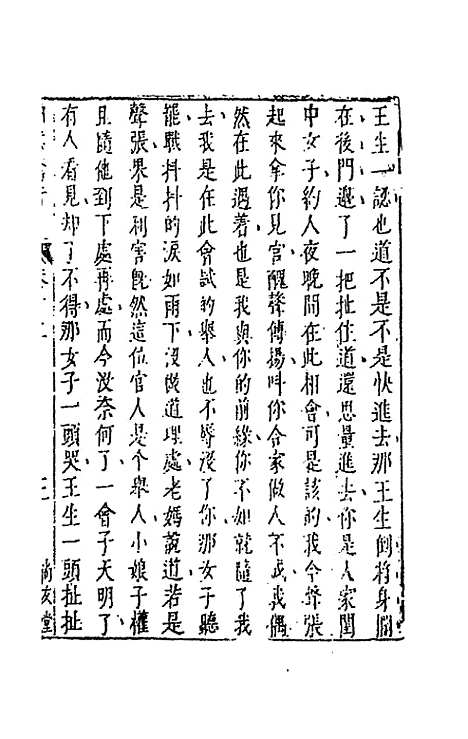 王生一認也道不是不是快進去那王生倒將身攔
在後門邊了一把扯住道還思量進去你是人家閨
中女子約人夜晚間在此相會可是該的我今聲張
起來拿你見官醜聲傳揚叫你合家做人不成我偶
然在此遇着也是我與你的前緣你不如就隨了我
去我是在此會試的舉人也不辱没了你那女子聽
罷戰抖抖的淚如雨下没做道理處老媽說道若是
聲張果是利害旣然這位官人是个舉人小娘子權
且隨他到下處再處而今没奈何了一會子天明了
有人看見却了不得那女子一頭哭王生一頭扯扯
卷十二 三 尚友堂